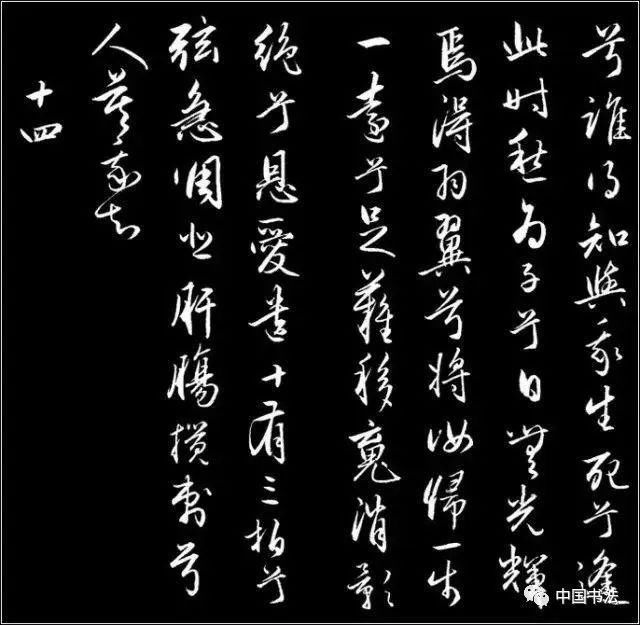 兮誰得知與我生死兮逢
此時愁為子兮日無光輝
焉得羽翼兮將汝歸一步
一遠兮足難移魂消影
絕兮恩愛遺十有三拍兮
弦急調悲肝腸攪刺兮
人莫我知
十四
中国书法